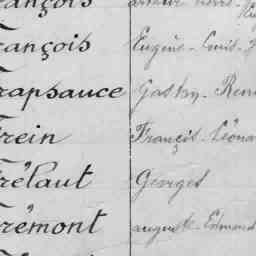 rançois
rançois Eugène-Louis-
rapsauce Gaston-René
rein Françis-Léona
rélaut Georges
rémont auguste-Edmond